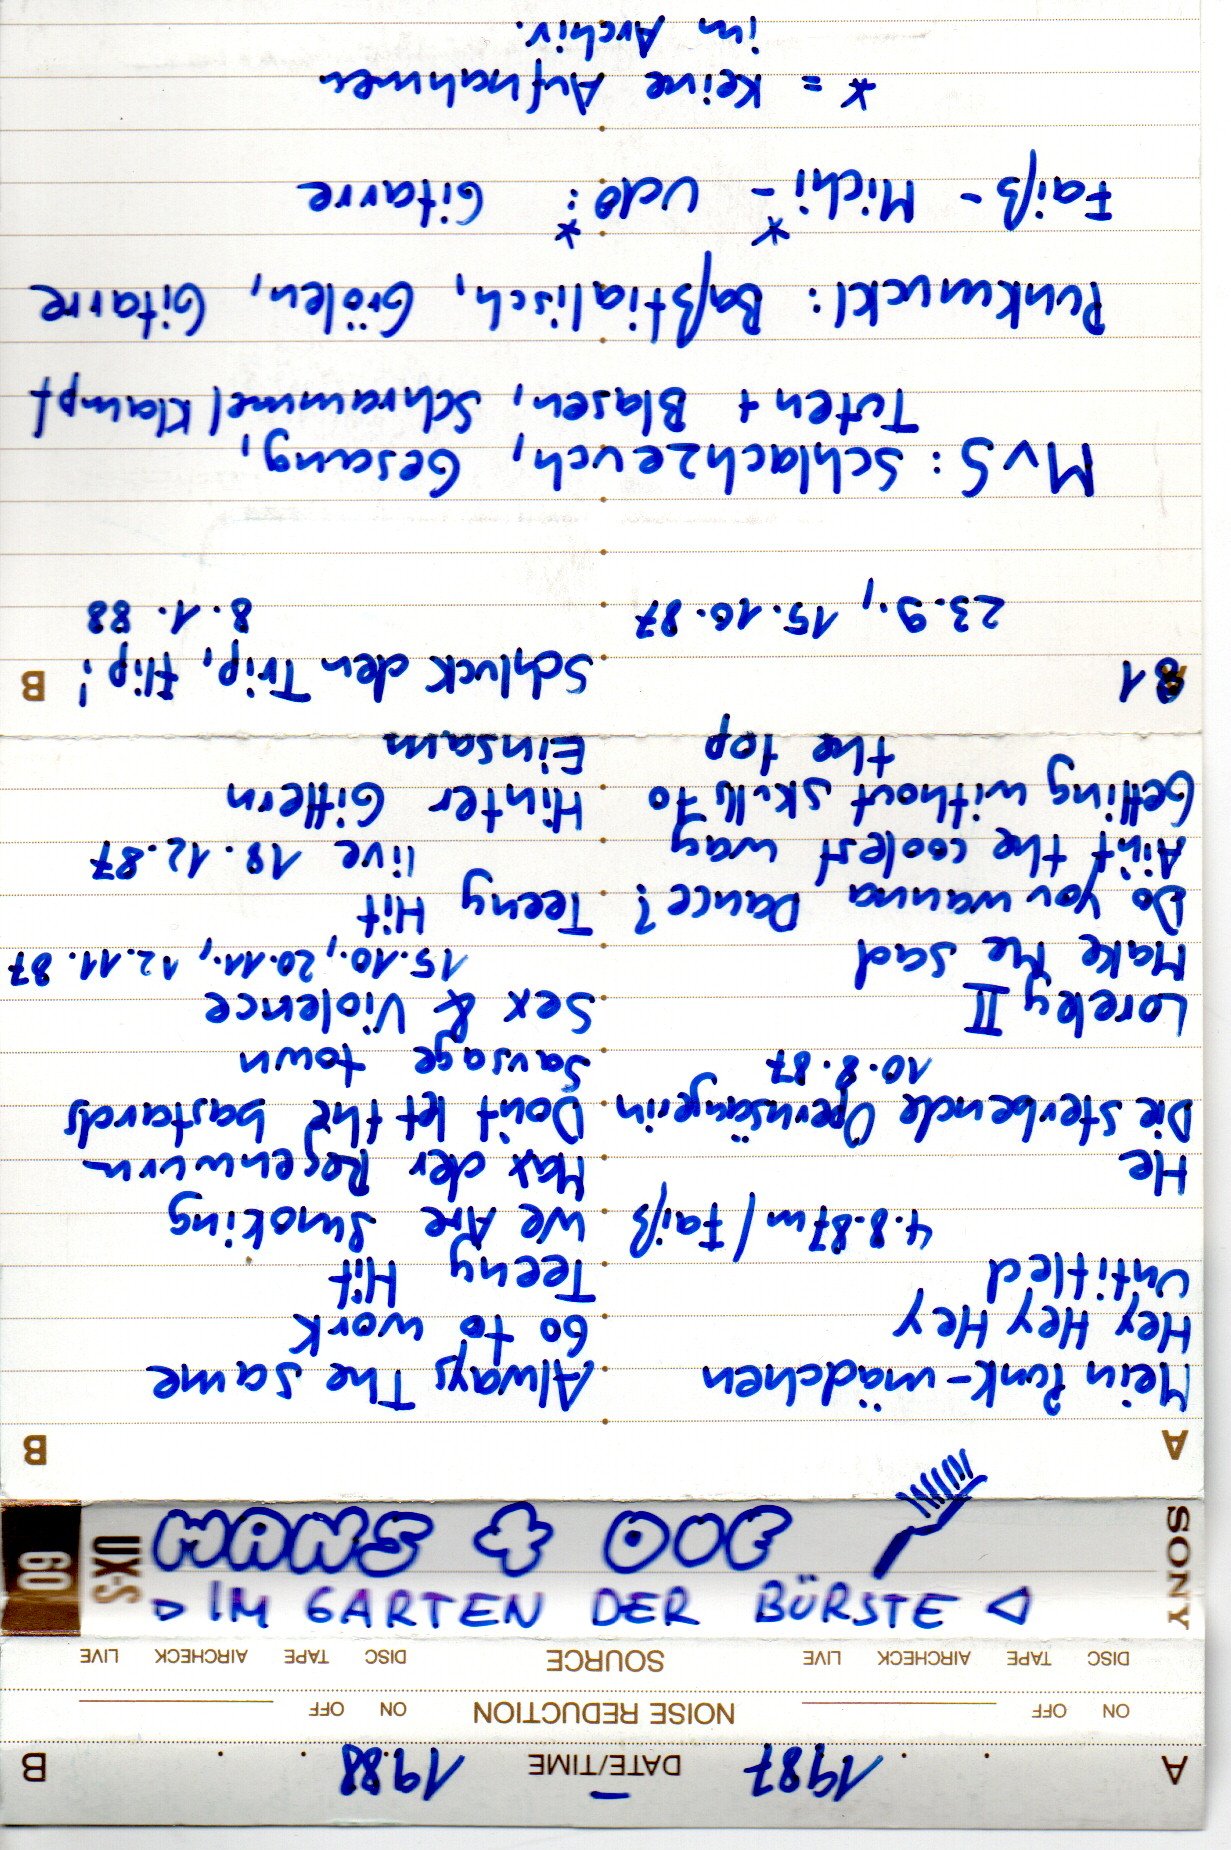 A DATE/TIME B
1987 – 1988
ON OFF NOISE REDUCTION ON OFF
DISC TAPE AIRCHECK LIVE SOURCE DISC TAPE AIRCHECK LIVE
▷ IM GARTEN DER BÜRSTE ◁
SONY
UX-S 60
A
Mein Punk-mädchen
Hey Hey Hey
Untitled
4.8.87 m/Faiß
He
Die sterbende Opernsängerin
10.8.87
Loreley II
Make Me Sad
Do you wanna Dance?
Ain't the coolest way
Getting without skills to
the top
23.9., 15.10.87
B
Always The same
Go to work
Teeny Hit
We Are Smoking
Max der Regenwurm
Don't let the bastards
Sausage town
Sex & Violence
15.10., 20.11., 12.11.87
Teeny Hit
live 18.12.87
Hinter Gittern
Einsam
B
Schluck den Trip, Flip!
8.1.88
MvS: Schlachzeuch, Gesang,
Tuten + Blasen, Schrammel/Klampf
Punkmuckl: Baßtialisch, Grölen, Gitarre
Faiß - Michi* - Udo*: Gitarre
* = Keine Aufnahmen
im Archiv.